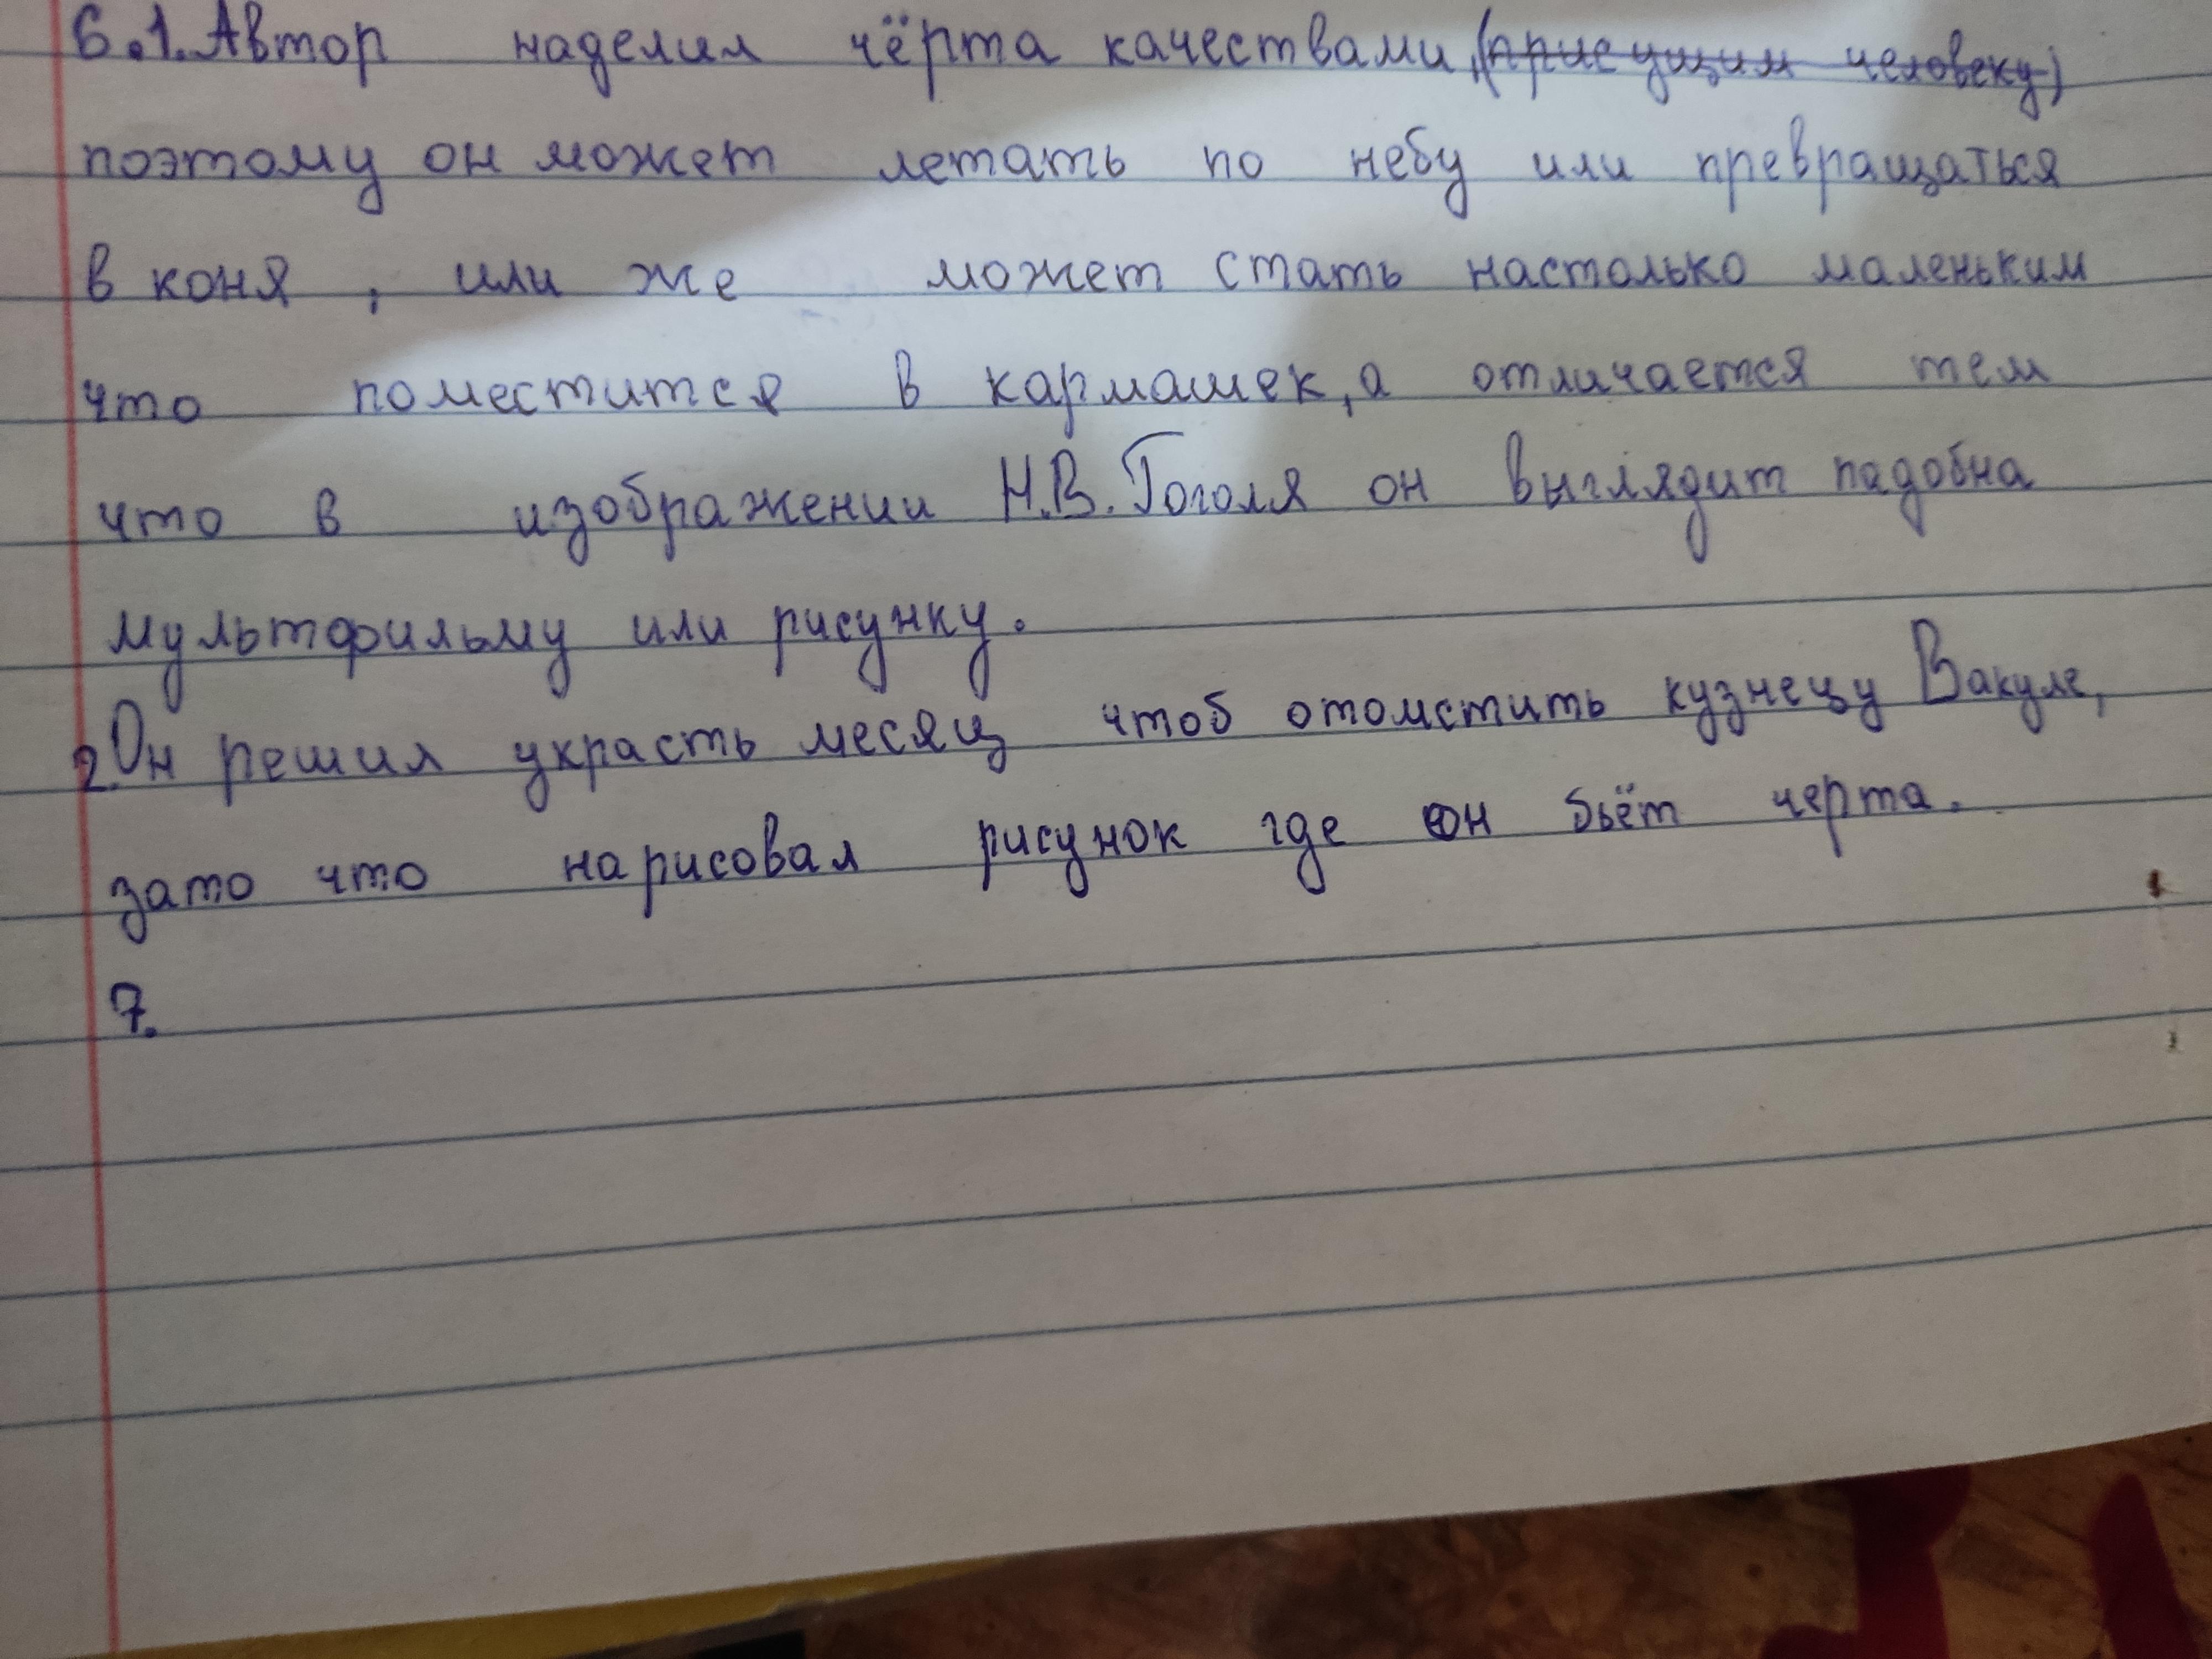 6.1. Автор наделил чёрта качествами, (присущим человеку)
поэтому он может летать по небу или превращаться
в коня, или же может стать настолько маленьким
что поместится в кармашек, а отличается тем
что в изображении Н.В. Гоголя он выглядит падобна
мультфильму или рисунку.
2. Он решил украсть месяц чтоб отомстить кузнецу Вакуле,
зато что нарисовал рисунок где он бьёт черта.
7.